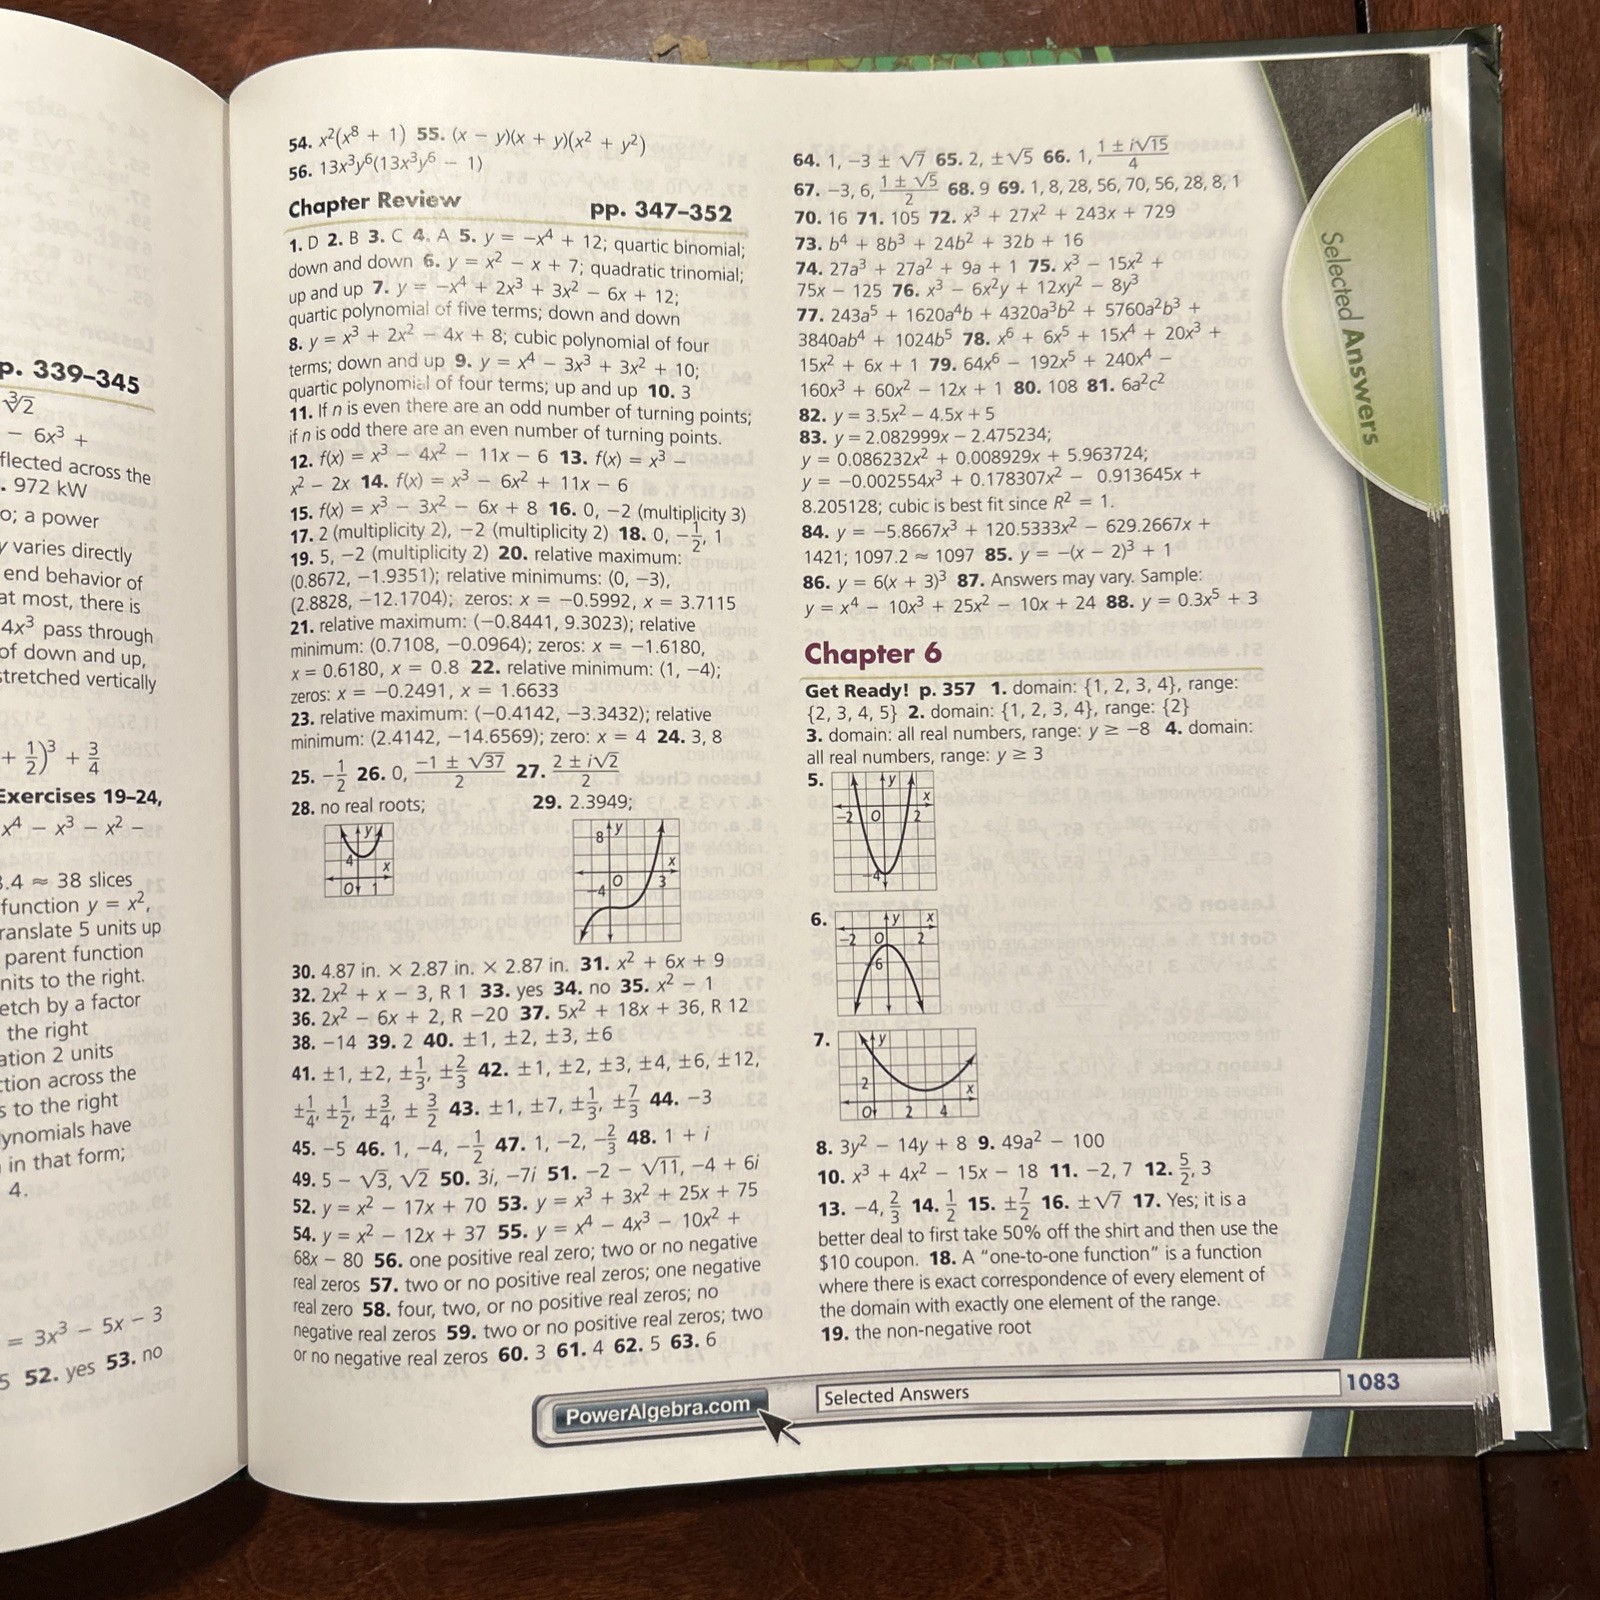 p. 339–345
∛2
– 6x³ +
flected across the
. 972 kW
o; a power
y varies directly
end behavior of
at most, there is
4x³ pass through
of down and up,
stretched vertically
+ 1/2)³ + 3/4
Exercises 19–24,
x⁴ – x³ – x² –
3.4 ≈ 38 slices
function y = x²,
ranslate 5 units up
parent function
nits to the right.
etch by a factor
the right
ation 2 units
ction across the
s to the right
lynomials have
in that form;
4.
= 3x³ – 5x – 3
5 52. yes 53. no
54. x²(x⁸ + 1) 55. (x – y)(x + y)(x² + y²)
56. 13x³y⁶(13x³y⁶ – 1)
Chapter Review pp. 347–352
1. D 2. B 3. C 4. A 5. y = –x⁴ + 12; quartic binomial;
down and down 6. y = x² – x + 7; quadratic trinomial;
up and up 7. y = –x⁴ + 2x³ + 3x² – 6x + 12;
quartic polynomial of five terms; down and down
8. y = x³ + 2x² – 4x + 8; cubic polynomial of four
terms; down and up 9. y = x⁴ – 3x³ + 3x² + 10;
quartic polynomial of four terms; up and up 10. 3
11. If n is even there are an odd number of turning points;
if n is odd there are an even number of turning points.
12. f(x) = x³ – 4x² – 11x – 6 13. f(x) = x³ –
x² – 2x 14. f(x) = x³ – 6x² + 11x – 6
15. f(x) = x³ – 3x² – 6x + 8 16. 0, –2 (multiplicity 3)
17. 2 (multiplicity 2), –2 (multiplicity 2) 18. 0, –1/2, 1
19. 5, –2 (multiplicity 2) 20. relative maximum:
(0.8672, –1.9351); relative minimums: (0, –3),
(2.8828, –12.1704); zeros: x = –0.5992, x = 3.7115
21. relative maximum: (–0.8441, 9.3023); relative
minimum: (0.7108, –0.0964); zeros: x = –1.6180,
x = 0.6180, x = 0.8 22. relative minimum: (1, –4);
zeros: x = –0.2491, x = 1.6633
23. relative maximum: (–0.4142, –3.3432); relative
minimum: (2.4142, –14.6569); zero: x = 4 24. 3, 8
25. –1/2 26. 0, (–1 ± √37)/2 27. (2 ± i√2)/2
28. no real roots; 29. 2.3949;
y
4
x
O 1
8 y
x
O
–4 3
30. 4.87 in. × 2.87 in. × 2.87 in. 31. x² + 6x + 9
32. 2x² + x – 3, R 1 33. yes 34. no 35. x² – 1
36. 2x² – 6x + 2, R –20 37. 5x² + 18x + 36, R 12
38. –14 39. 2 40. ±1, ±2, ±3, ±6
41. ±1, ±2, ±1/3, ±2/3 42. ±1, ±2, ±3, ±4, ±6, ±12,
±1/4, ±1/2, ±3/4, ± 3/2 43. ±1, ±7, ±1/3, ±7/3 44. –3
45. –5 46. 1, –4, –1/2 47. 1, –2, –2/3 48. 1 + i
49. 5 – √3, √2 50. 3i, –7i 51. –2 – √11, –4 + 6i
52. y = x² – 17x + 70 53. y = x³ + 3x² + 25x + 75
54. y = x² – 12x + 37 55. y = x⁴ – 4x³ – 10x² +
68x – 80 56. one positive real zero; two or no negative
real zeros 57. two or no positive real zeros; one negative
real zero 58. four, two, or no positive real zeros; no
negative real zeros 59. two or no positive real zeros; two
or no negative real zeros 60. 3 61. 4 62. 5 63. 6
64. 1, –3 ± √7 65. 2, ±√5 66. 1, (1 ± i√15)/4
67. –3, 6, (1 ± √5)/2 68. 9 69. 1, 8, 28, 56, 70, 56, 28, 8, 1
70. 16 71. 105 72. x³ + 27x² + 243x + 729
73. b⁴ + 8b³ + 24b² + 32b + 16
74. 27a³ + 27a² + 9a + 1 75. x³ – 15x² +
75x – 125 76. x³ – 6x²y + 12xy² – 8y³
77. 243a⁵ + 1620a⁴b + 4320a³b² + 5760a²b³ +
3840ab⁴ + 1024b⁵ 78. x⁶ + 6x⁵ + 15x⁴ + 20x³ +
15x² + 6x + 1 79. 64x⁶ – 192x⁵ + 240x⁴ –
160x³ + 60x² – 12x + 1 80. 108 81. 6a²c²
82. y = 3.5x² – 4.5x + 5
83. y = 2.082999x – 2.475234;
y = 0.086232x² + 0.008929x + 5.963724;
y = –0.002554x³ + 0.178307x² – 0.913645x +
8.205128; cubic is best fit since R² = 1.
84. y = –5.8667x³ + 120.5333x² – 629.2667x +
1421; 1097.2 ≈ 1097 85. y = –(x – 2)³ + 1
86. y = 6(x + 3)³ 87. Answers may vary. Sample:
y = x⁴ – 10x³ + 25x² – 10x + 24 88. y = 0.3x⁵ + 3
Chapter 6
Get Ready! p. 357 1. domain: {1, 2, 3, 4}, range:
{2, 3, 4, 5} 2. domain: {1, 2, 3, 4}, range: {2}
3. domain: all real numbers, range: y ≥ –8 4. domain:
all real numbers, range: y ≥ 3
5.
y
x
–2 O 2
–4
6.
y x
–2 O 2
–6
7.
y
2 x
O 2 4
8. 3y² – 14y + 8 9. 49a² – 100
10. x³ + 4x² – 15x – 18 11. –2, 7 12. 5/2, 3
13. –4, 2/3 14. 1/2 15. ±7/2 16. ±√7 17. Yes; it is a
better deal to first take 50% off the shirt and then use the
$10 coupon. 18. A “one-to-one function” is a function
where there is exact correspondence of every element of
the domain with exactly one element of the range.
19. the non-negative root
Selected Answers
PowerAlgebra.com
Selected Answers
1083